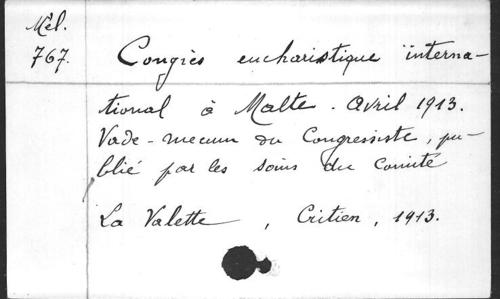 Mél.
767.
Congrès eucharistique interna-
tional à Malte. Avril 1913.
Vade-mecum du Congressiste, pu-
blié par les soins du Comité
La Valette, Critien, 1913.